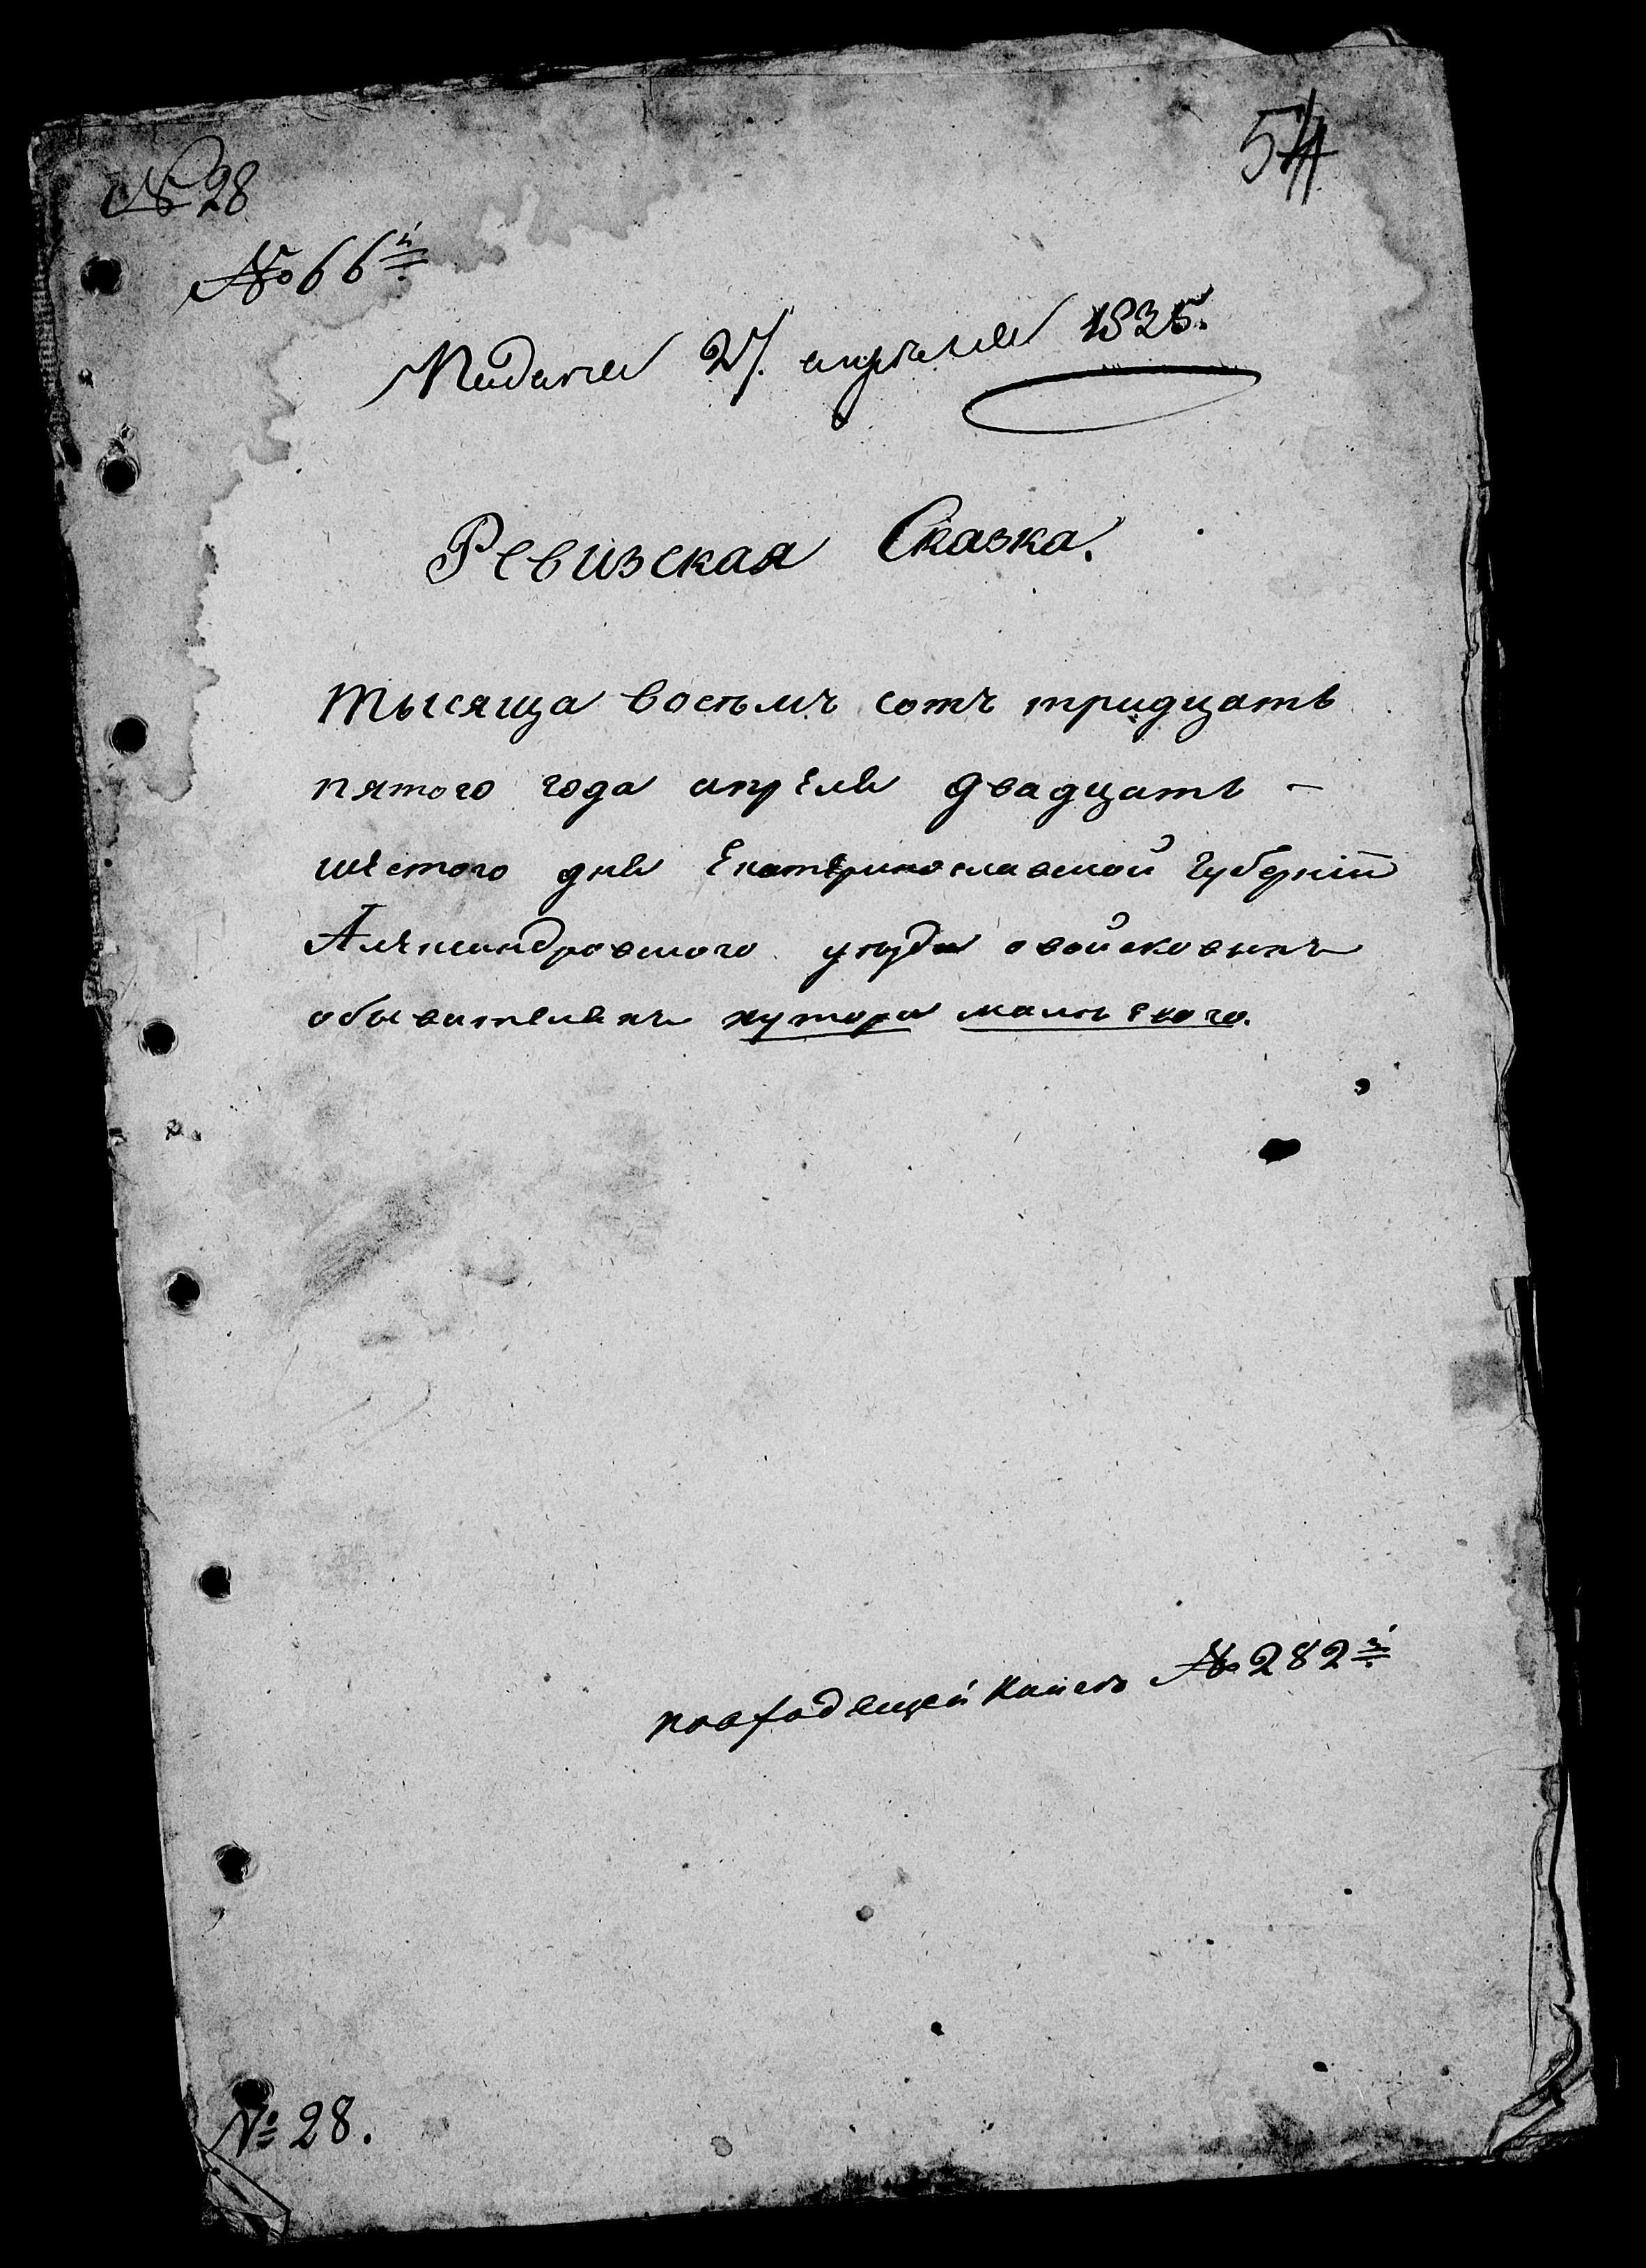 № 28
54
№ 66й
Подана 27. апреля 1835.
Ревизская Сказка.
Тысяща восемъ сотъ тридцать
пятого года апреля двадцать –
шестого дня Екатеринославской Губернiи
Александровского уезда овойсковыхъ
обывателяхъ хутора
№ 282й
№ 28.